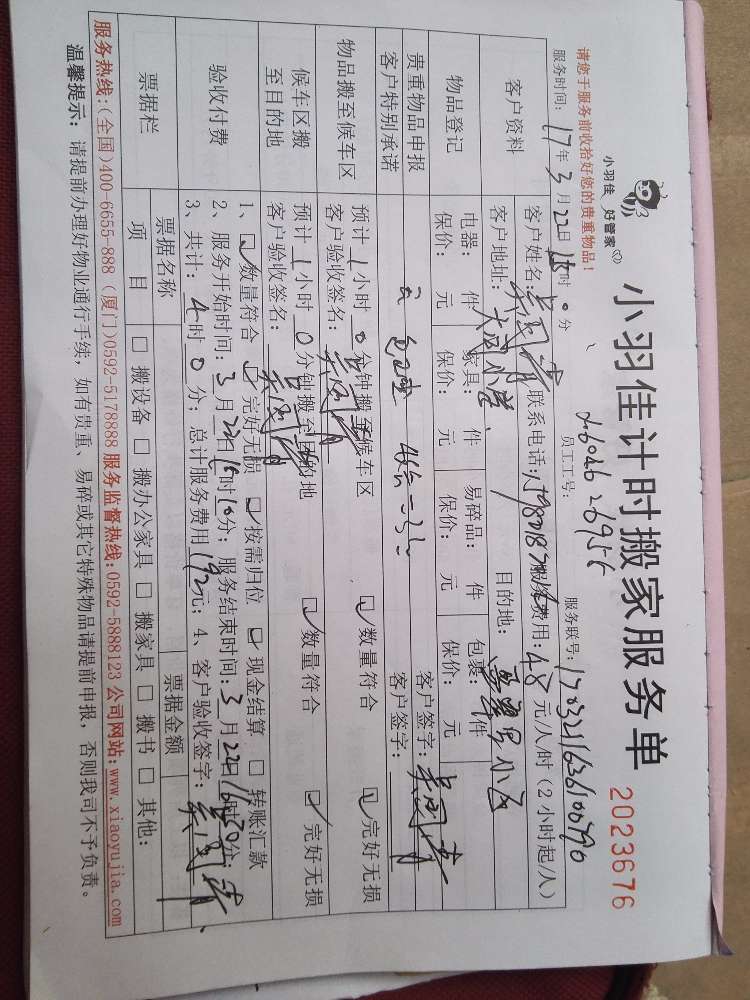 小羽佳 好管家
小羽佳计时搬家服务单
2023676
请您于服务前收拾好您的贵重物品！
员工工号：
服务联号：
服务时间： 17年 3月 22日 时 0分
客户资料
客户姓名： 联系电话： 服务费用：48元/人/时（2小时起/人）
客户地址： 目的地：
物品登记
电器： 件 家具： 件 易碎品： 件 包裹： 件
保价： 元 保价： 元 保价： 元 保价： 元
贵重物品申报 客户签字：
客户特别承诺 客户签字：
物品搬至候车区
预计1小时0分钟搬至候车区 数量符合 完好无损
客户验收签名：
候车区搬至目的地
预计1小时0分钟搬至目的地 数量符合 完好无损
客户验收签名：
验收付费
1、数量符合 完好无损 按需归位 现金结算 转账汇款
2、服务开始时间：3月22日15时10分；服务结束时间：3月22日16时30分；
3、共计：4时0分；总计服务费用192元；4、客户验收签字：
票据栏
票据名称 票据金额
项目 搬设备 搬办公家具 搬家具 搬书 其他：
服务热线：(全国)400-6655-888 (厦门)0592-5178888 服务监督热线：0592-5888123 公司网站：www.xiaoyujia.com
温馨提示：请提前办理好物业通行手续，如有贵重、易碎或其它特殊物品请提前申报，否则我司不予负责。